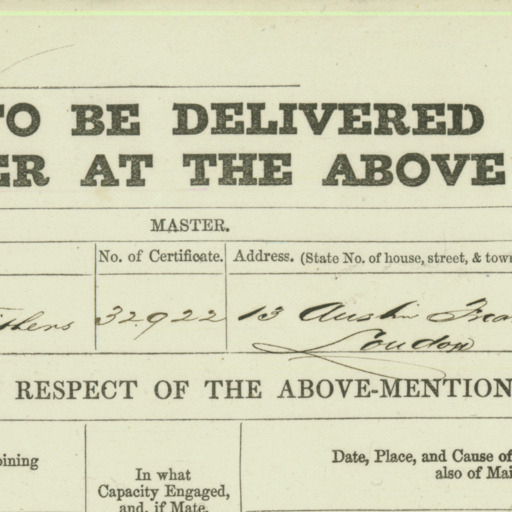 TO BE DELIVERED
ER AT THE ABOVE
MASTER.
No. of Certificate.
Address. (State No. of house, street, & town
32922
13 Austin
London
RESPECT OF THE ABOVE-MENTION
ining
In what
Capacity Engaged,
and, if Mate,
Date, Place, and Cause of
also of Mai